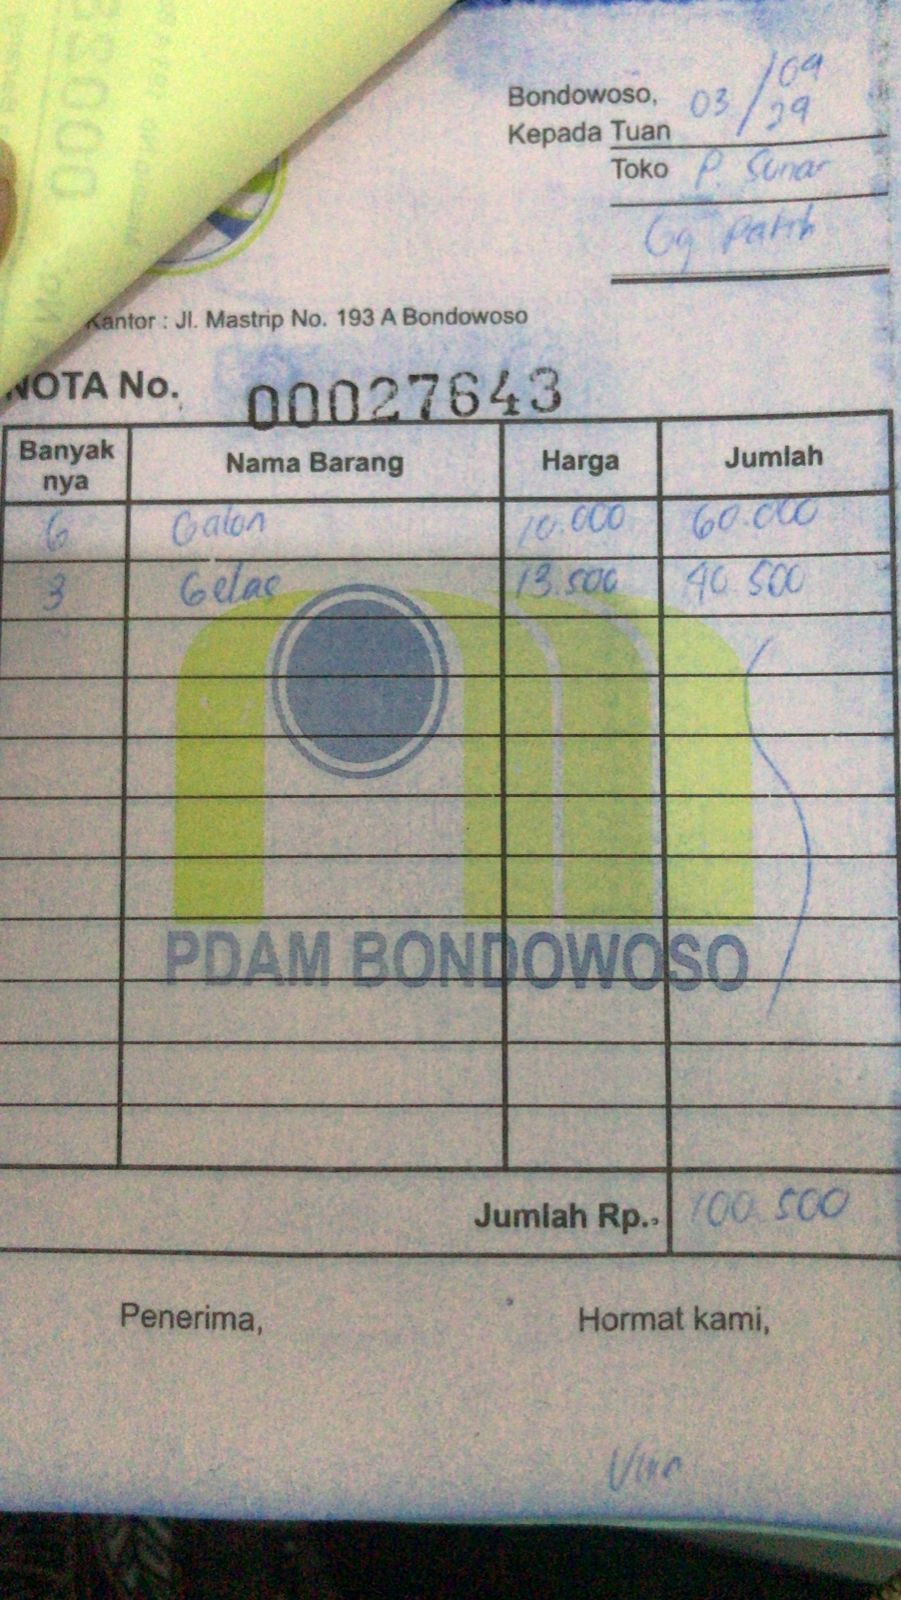 Bondowoso, 03/09
Kepada Tuan 29
Toko P. Sunar
Gg Patih
Kantor : Jl. Mastrip No. 193 A Bondowoso
NOTA No. 00027643
Banyak nya Nama Barang Harga Jumlah
6 Galon 10.000 60.000
3 Gelas 13.500 40 500
PDAM BONDOWOSO
Jumlah Rp. 100.500
Penerima, Hormat kami,